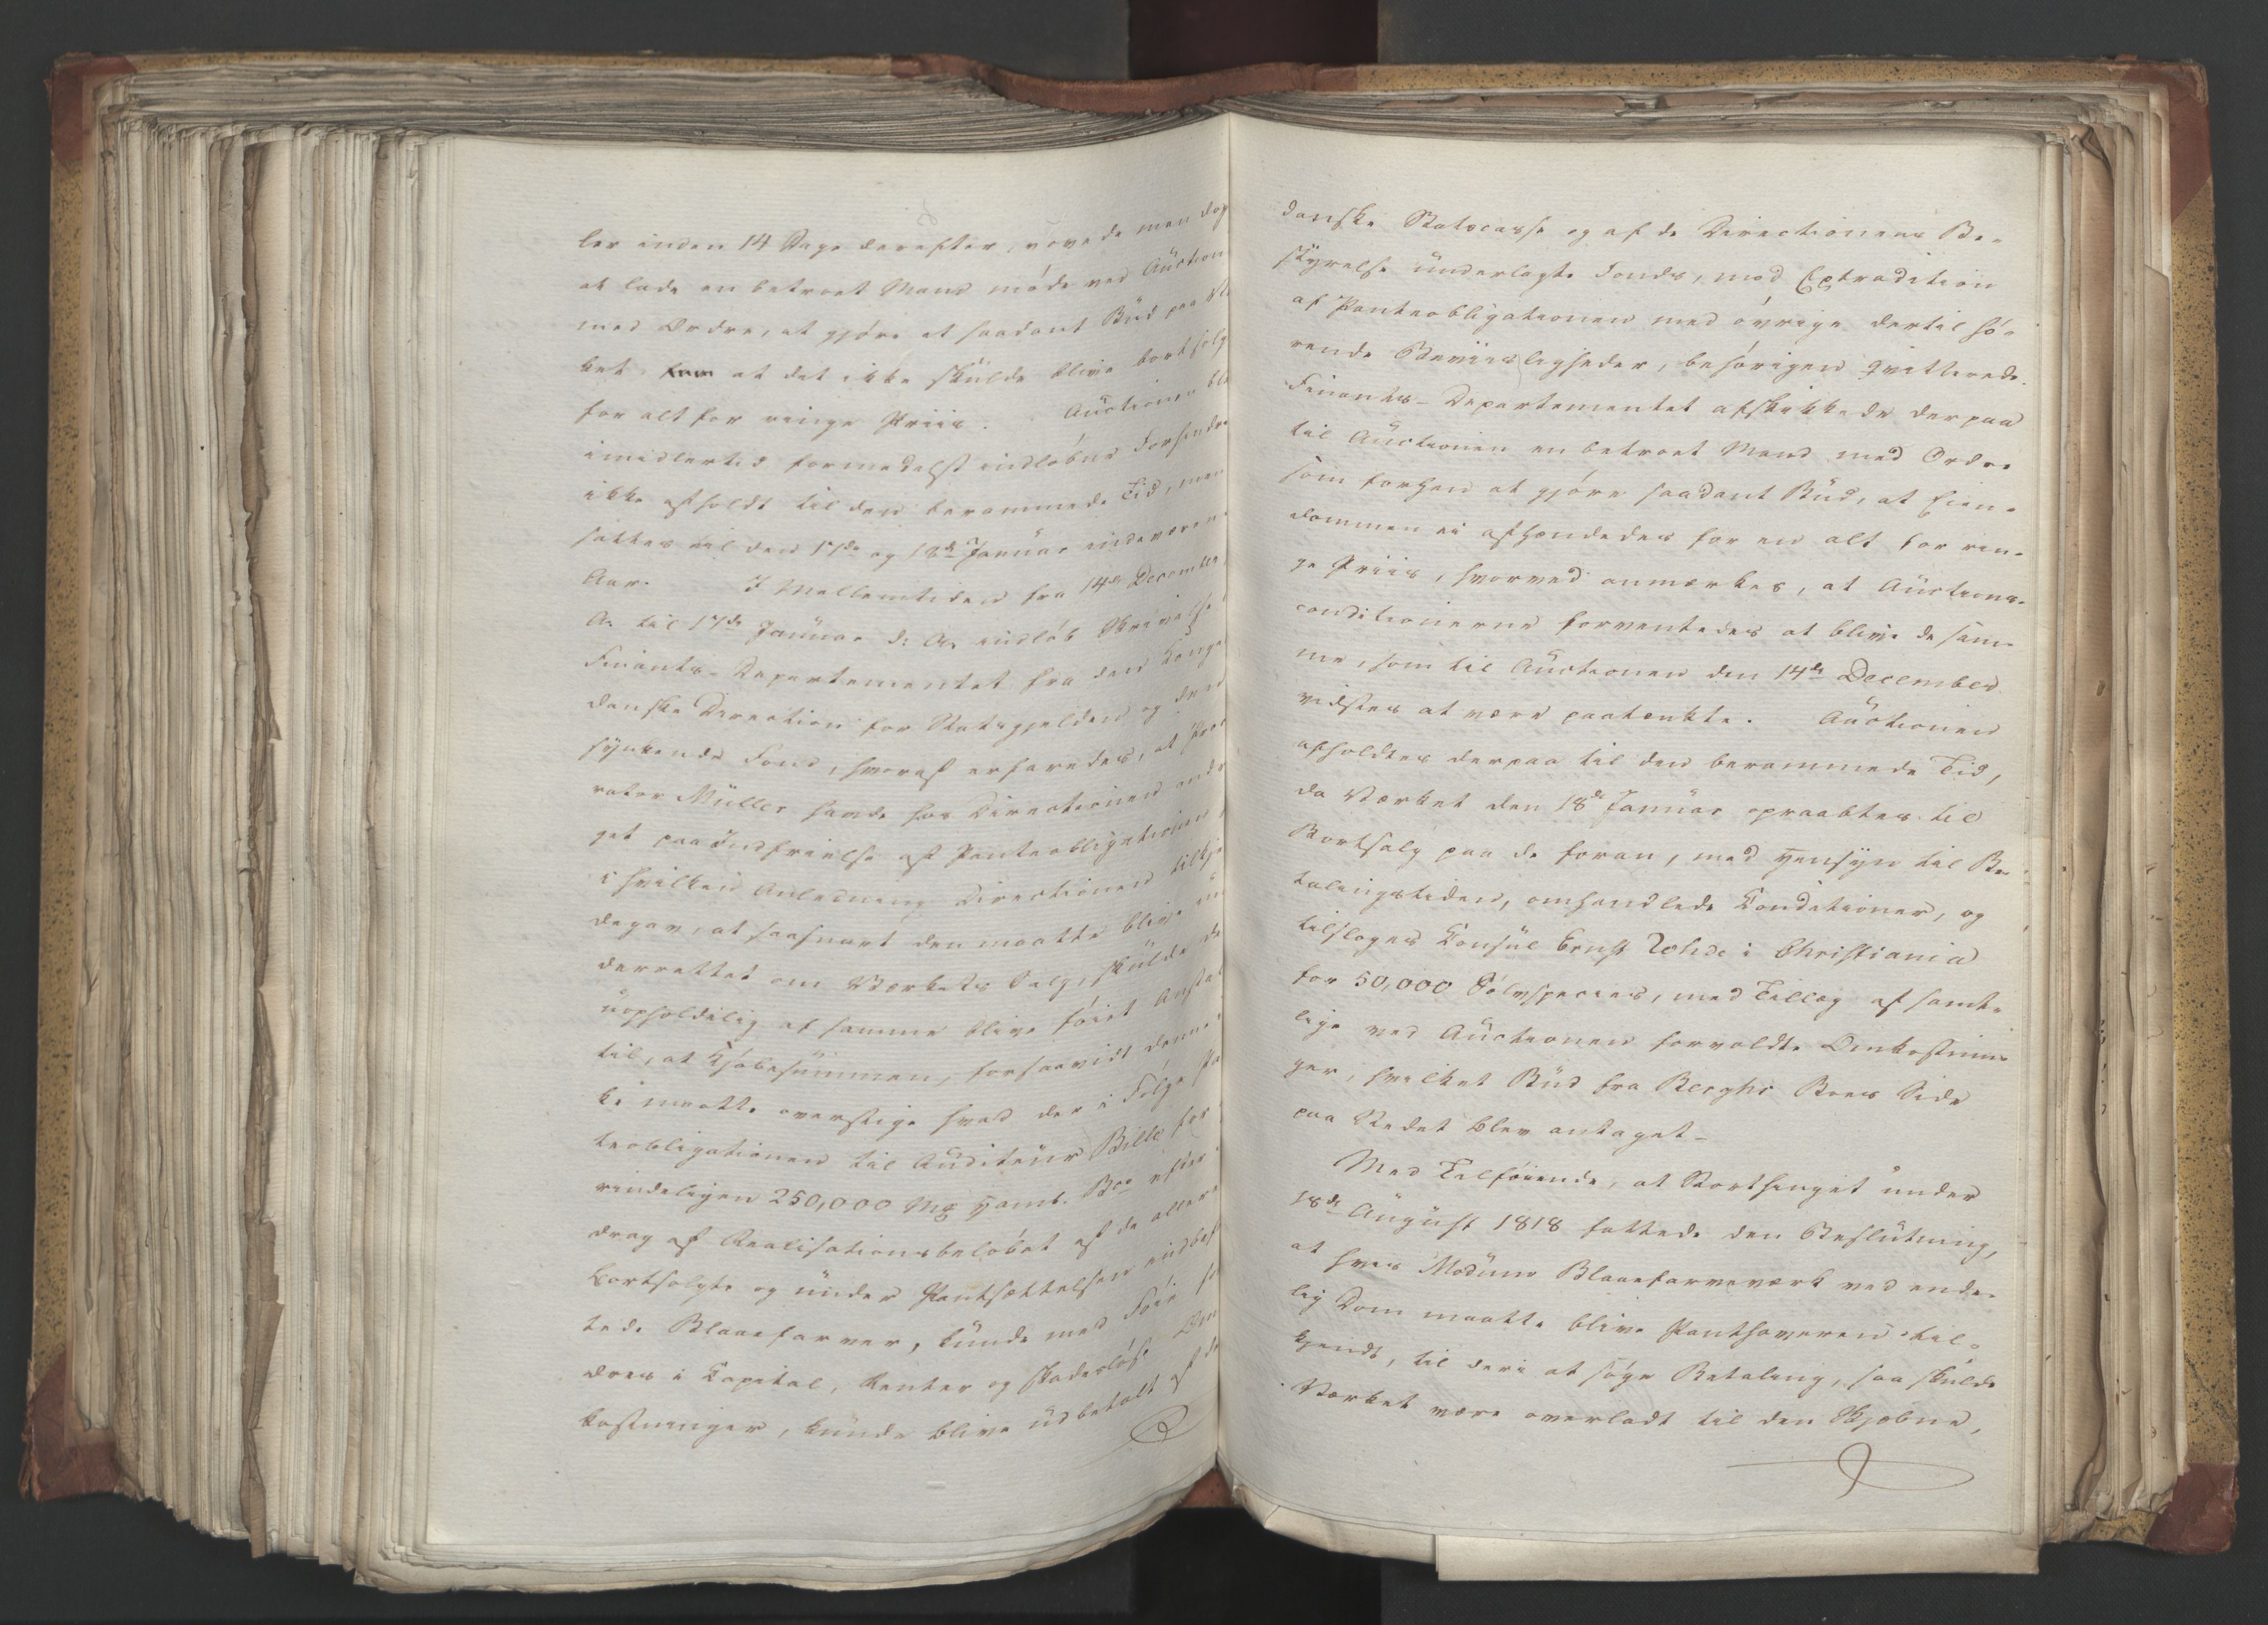 ler inden 14 Dage derefter, vovede man dog
at lade en betroet Mand møde ved Auction
med Ordre, at gjøre et saadant Bud paa
ket, at det ikke skulde blive bortsolg
for alt for ringe Priis. Auctionen ble
imidlertid formedelst indløbne Forhindr
ikke afholdt til den berammede Tid, men
sattes til den 17de og 18de Januar indeværen
Aar. I Mellemtiden fra 14de December
A. til 17de Januar d: A. indløb Skrivelse
Finants-Departementet fra den Konge
danske Direction for Statsgjelden og den
synkende Fond, hvoraf erfaredes, at Pro
rator Müller havde hos Directionen andr
get paa Indfrielse af Panteobligationen
i hvilken Anledning Directionen tilkje
degav, at saasnart den maatte blive un
derrettet om Værkets Salg, skulde de
uopholdelig af samme blive føiet Anstal
til, at Kjøbesummen, forsaavidt denne
ke maatte overstige hvad der i Følge Pa
teobligationen til Auditeur Bille for
rindeligen 250,000 Mk Hamb. Bco efter
drag af Realisationsbeløbet af de aller
bortsolgte og under Pantsættelsen indbef
tede Blaaefarver, kunde med Føie
dres i Capital, Renter og skadesløse Om
kostninger, kunde blive udbetalt af d
danske Statscasse og af de Directionens Be-
styrelse underlagte Fonds, mod Extradition
af Panteobligationen med øvrige dertil hø-
rende Beviisligheder, behørigen qvitterede.
Finants-Departementet afskikkede derpaa
til Auctionen en betroet Mand med Ordre
som forhen at gjøre saadant Bud, at Eien-
dommen ei afhændedes for en alt for rin-
ge Priis, hvorved anmærkes, at Auctions-
conditionerne forventedes at blive de sam-
me, som til Auctionen den 14de December
vidstes at være paatænkte. Auctionen
afholdtes derpaa til den berammede Tid,
da Værket den 18de Januar opraabtes til
Bortsalg paa de foran, med Hensyn til Be-
talingstiden, omhandlede Conditioner, og
tilsloges Consul Ernst Rohde i Christiania
for 50,000 Sølvspecies, med Tillæg af samt-
lige ved Auctionen forvoldte Omkostnin-
ger, hvilket Bud fra Berghs Boes Side
paa Stedet blev antaget-
Med Tilføiende, at Storthinget under
18de August 1818 fattede den Beslutning,
at hvis Modums Blaaefarveværk ved ende-
lig Dom maatte blive Panthaveren til-
kjendt, til deri at søge Betaling, saa skulde
Værket være overladt til den Skjebne,